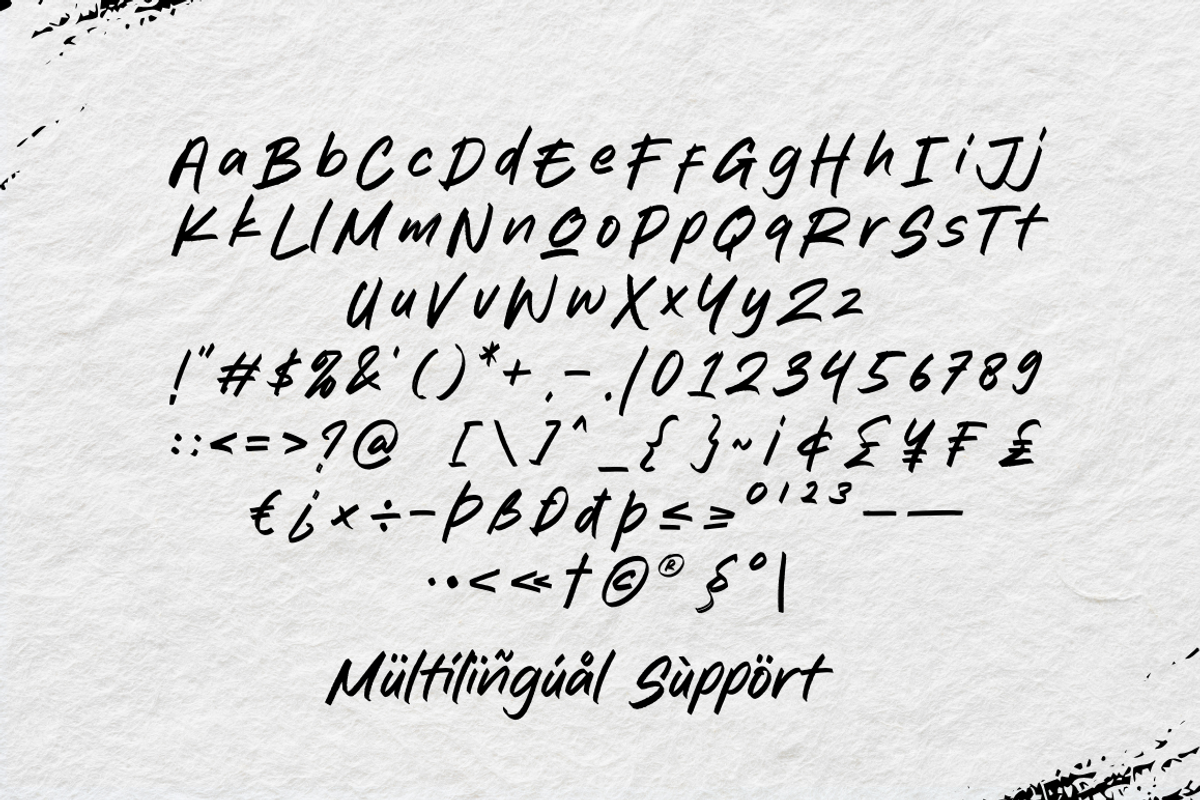 AaBbCcDdEeFfGgHhIiJj
KkLlMmNnOoPpQqRrSsTt
UuVvWwXxYyZz
!"#$%&'()*+,-./0123456789
:;<=>?@ [\]^_{}~¡¢£¥₣£
€¿×÷−ÞßÐđþ≤≥⁰¹²³–—
·•‹«†©®§°|
Mültílïñgúål Sùppört